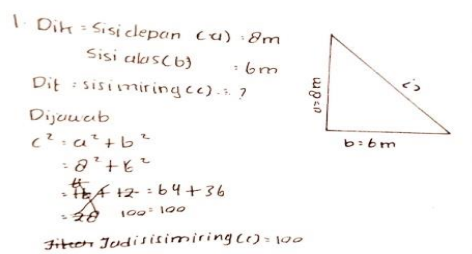 1. Dik = Sisi depan (a) = 8m
Sisi alas (b) = 6m
Dit = sisi miring (c) = ?
Dijawab
c² = a² + b²
= 8² + 6²
= 64 + 36
100 = 100
Jadi sisi miring (c) = 100
a=8m
c=
b=6m